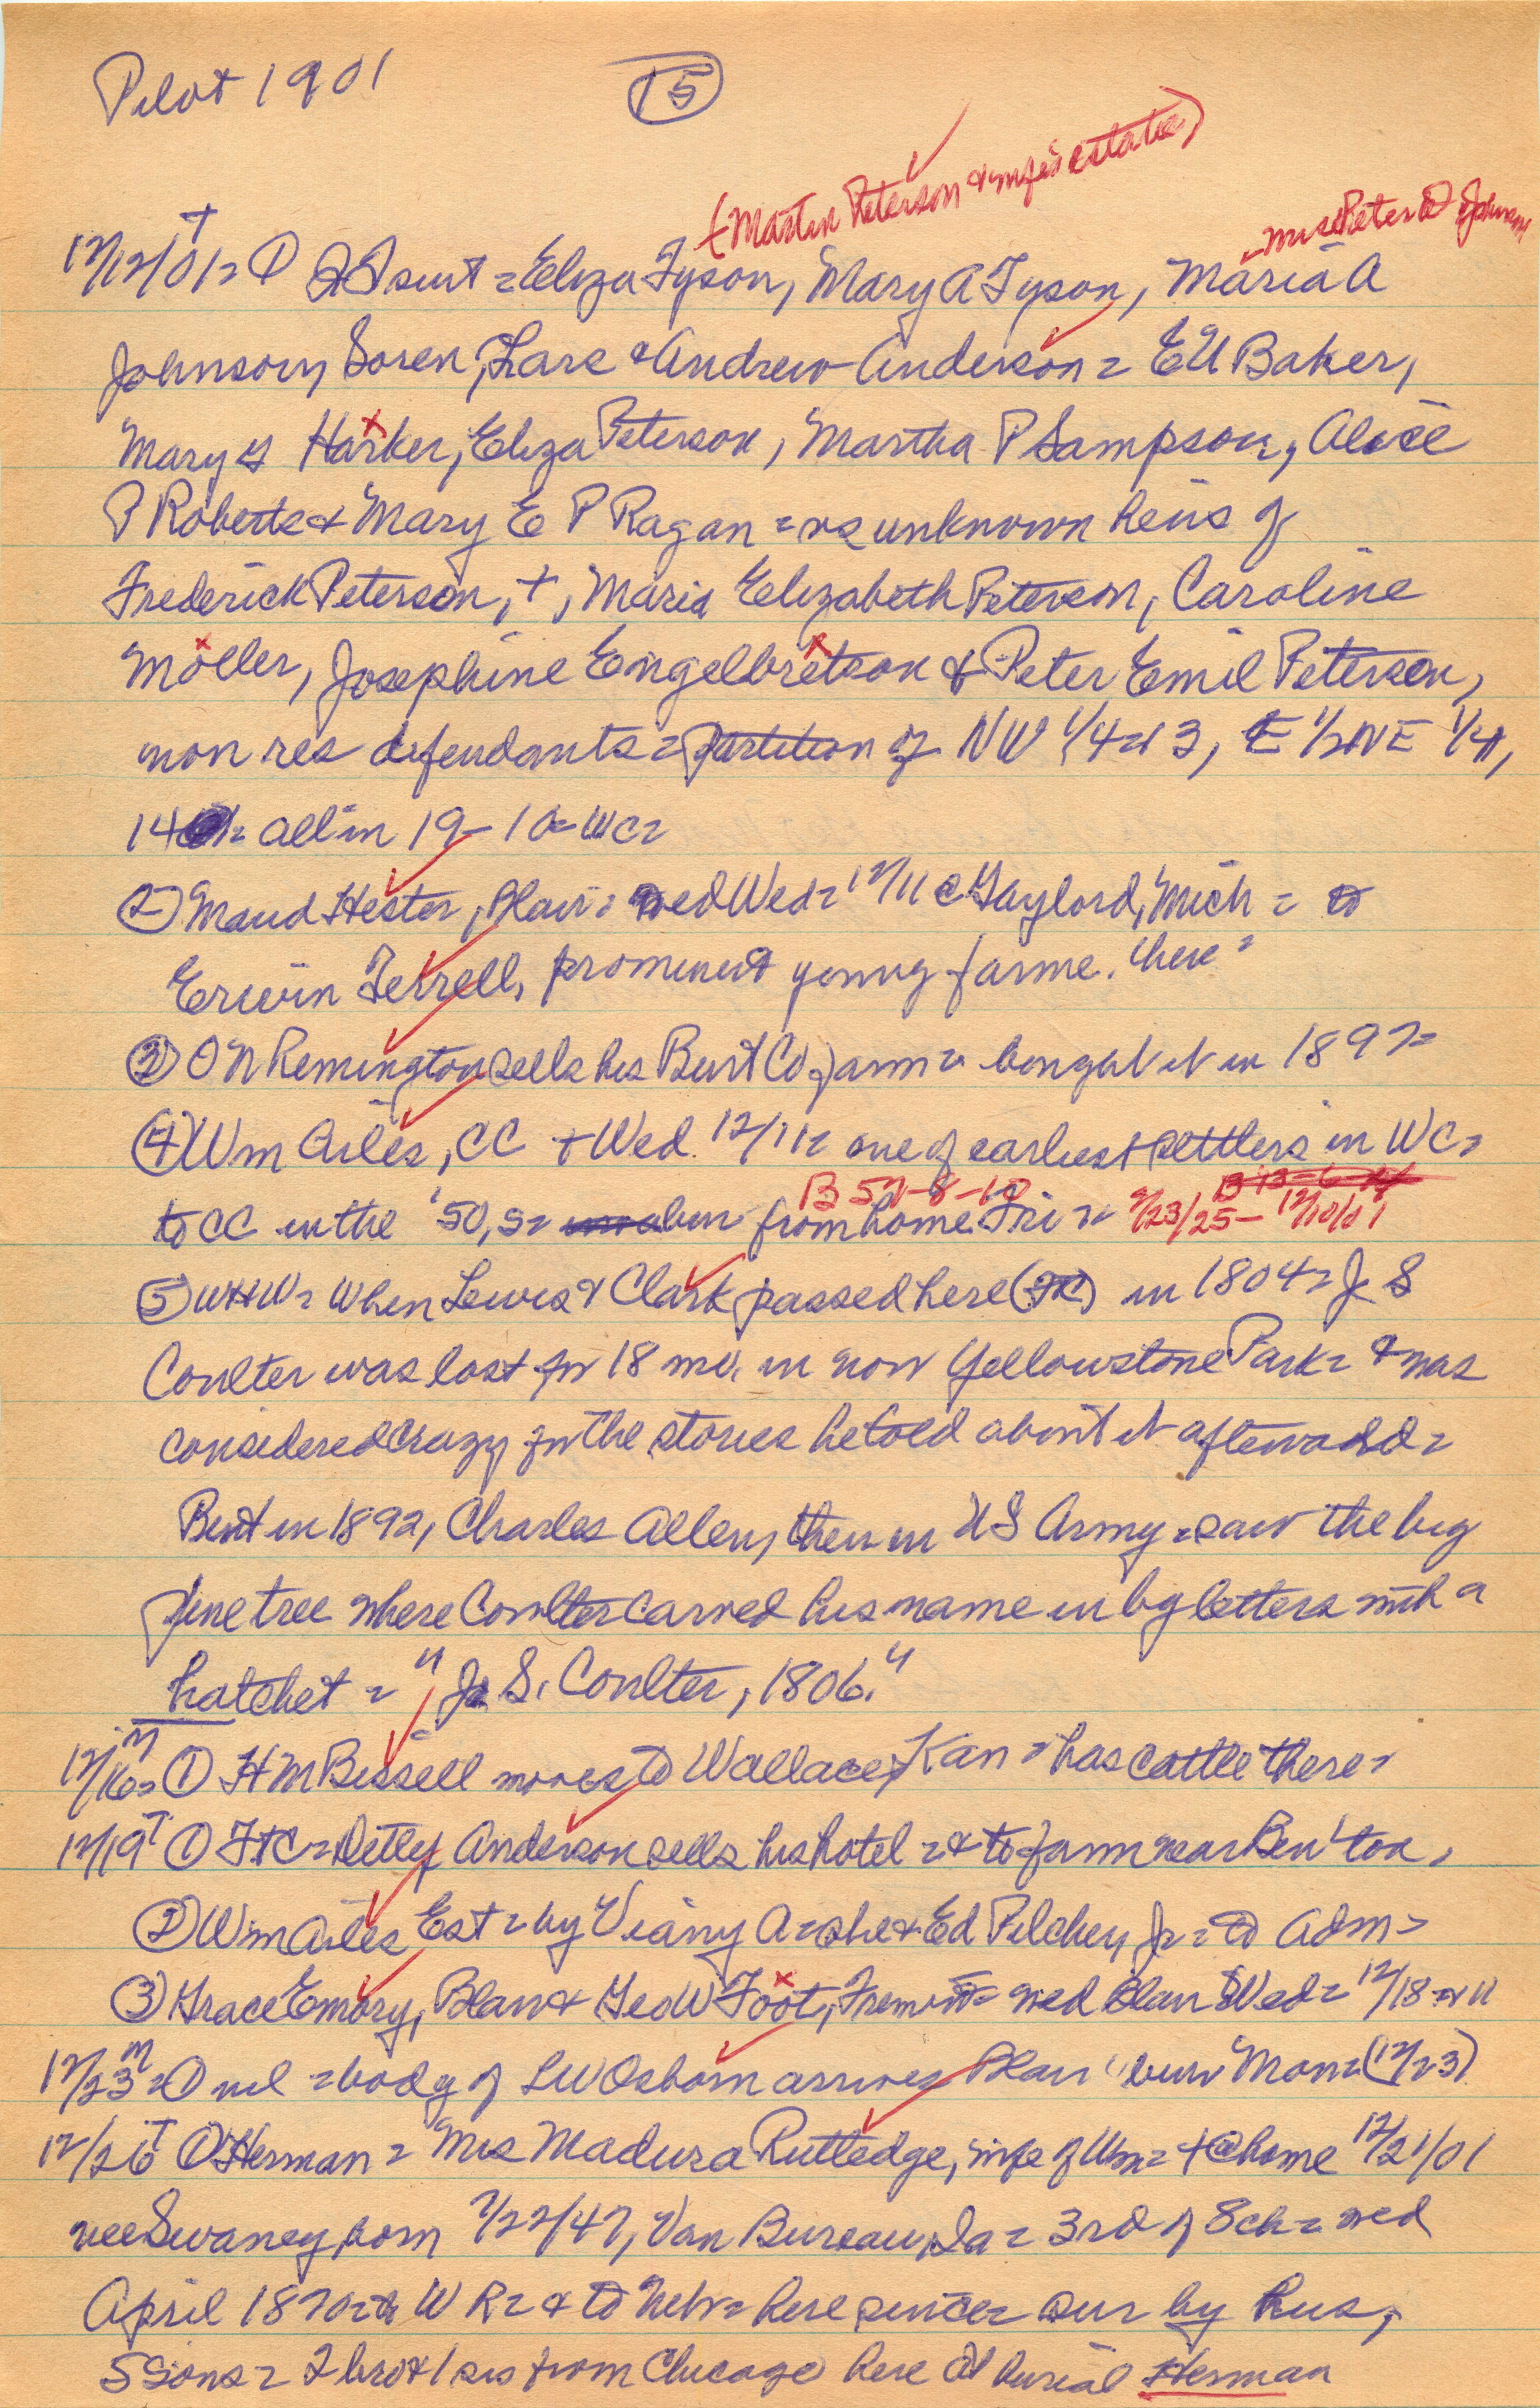 Pilot 1901 (15)
(Martin Peterson & wife's estate)
12/12/01 = ① suit = Eliza Tyson, Mary A Tyson, Maria A
Johnson, Soren, Lars & Andrew Anderson = E U Baker,
Mary Harker, Eliza Peterson, Martha P Sampson, Alice
P Roberts & Mary E P Ragan = vs unknown heirs of
Frederick Peterson, +, Maria Elizabeth Peterson, Caroline
Möller, Josephine Engelbretson & Peter Emil Peterson,
non res defendants = partition of NW 1/4 13, E 1/2 NE 1/4,
14 = all in 19-10 = WC =
② Maud Hester, Blair = wed Wed = 12/11 @ Gaylord, Mich = to
Erwin Terrell, prominent young farmer there =
③ O N Remington sells his Burt Co farm = bought it in 1897 =
④ Wm Ailes, CC + Wed. 12/11 = one of earliest settlers in WC =
B 52-8-10 B 13-6-14
to CC in the '50,s = bur from home Fri = 9/23/25 - 12/10/01
⑤ = When Lewis & Clark passed here (FtC) in 1804 = J S
Coulter was lost for 18 mo. in now Yellowstone Park = & was
considered crazy for the stories he told about it afterward =
But in 1892, Charles Allen, then in US Army = saw the big
pine tree where Coulter carved his name in big letters with a
hatchet = "J. S. Coulter, 1806."
12/16 M = ① H M Bissell moves to Wallace, Kan = has cattle there =
12/19 T ① FtC = Detlef Anderson sells his hotel = & to farm near Ben'ton,
② Wm Ailes Est = by Viany A = she & Ed Pilcher, Jr = to Adm =
③ Grace Emory, Blair & Geo W Foot, Fremont = wed Blair Wed = 12/18 =
12/23 M = ① = body of L W Osborn arrives Blair bur Mon = (12/23)
12/26 T ① Herman = Mrs Madura Rutledge, wife of Wm = + @ home 12/21/01
nee Swaney, born 7/22/47, Van Bureau, Ia = 3rd of 8 ch = wed
April 1870 = to W R = & to Neb = here since = sur by hus,
5 sons = 2 bro & 1 sis from Chicago here at burial Herman